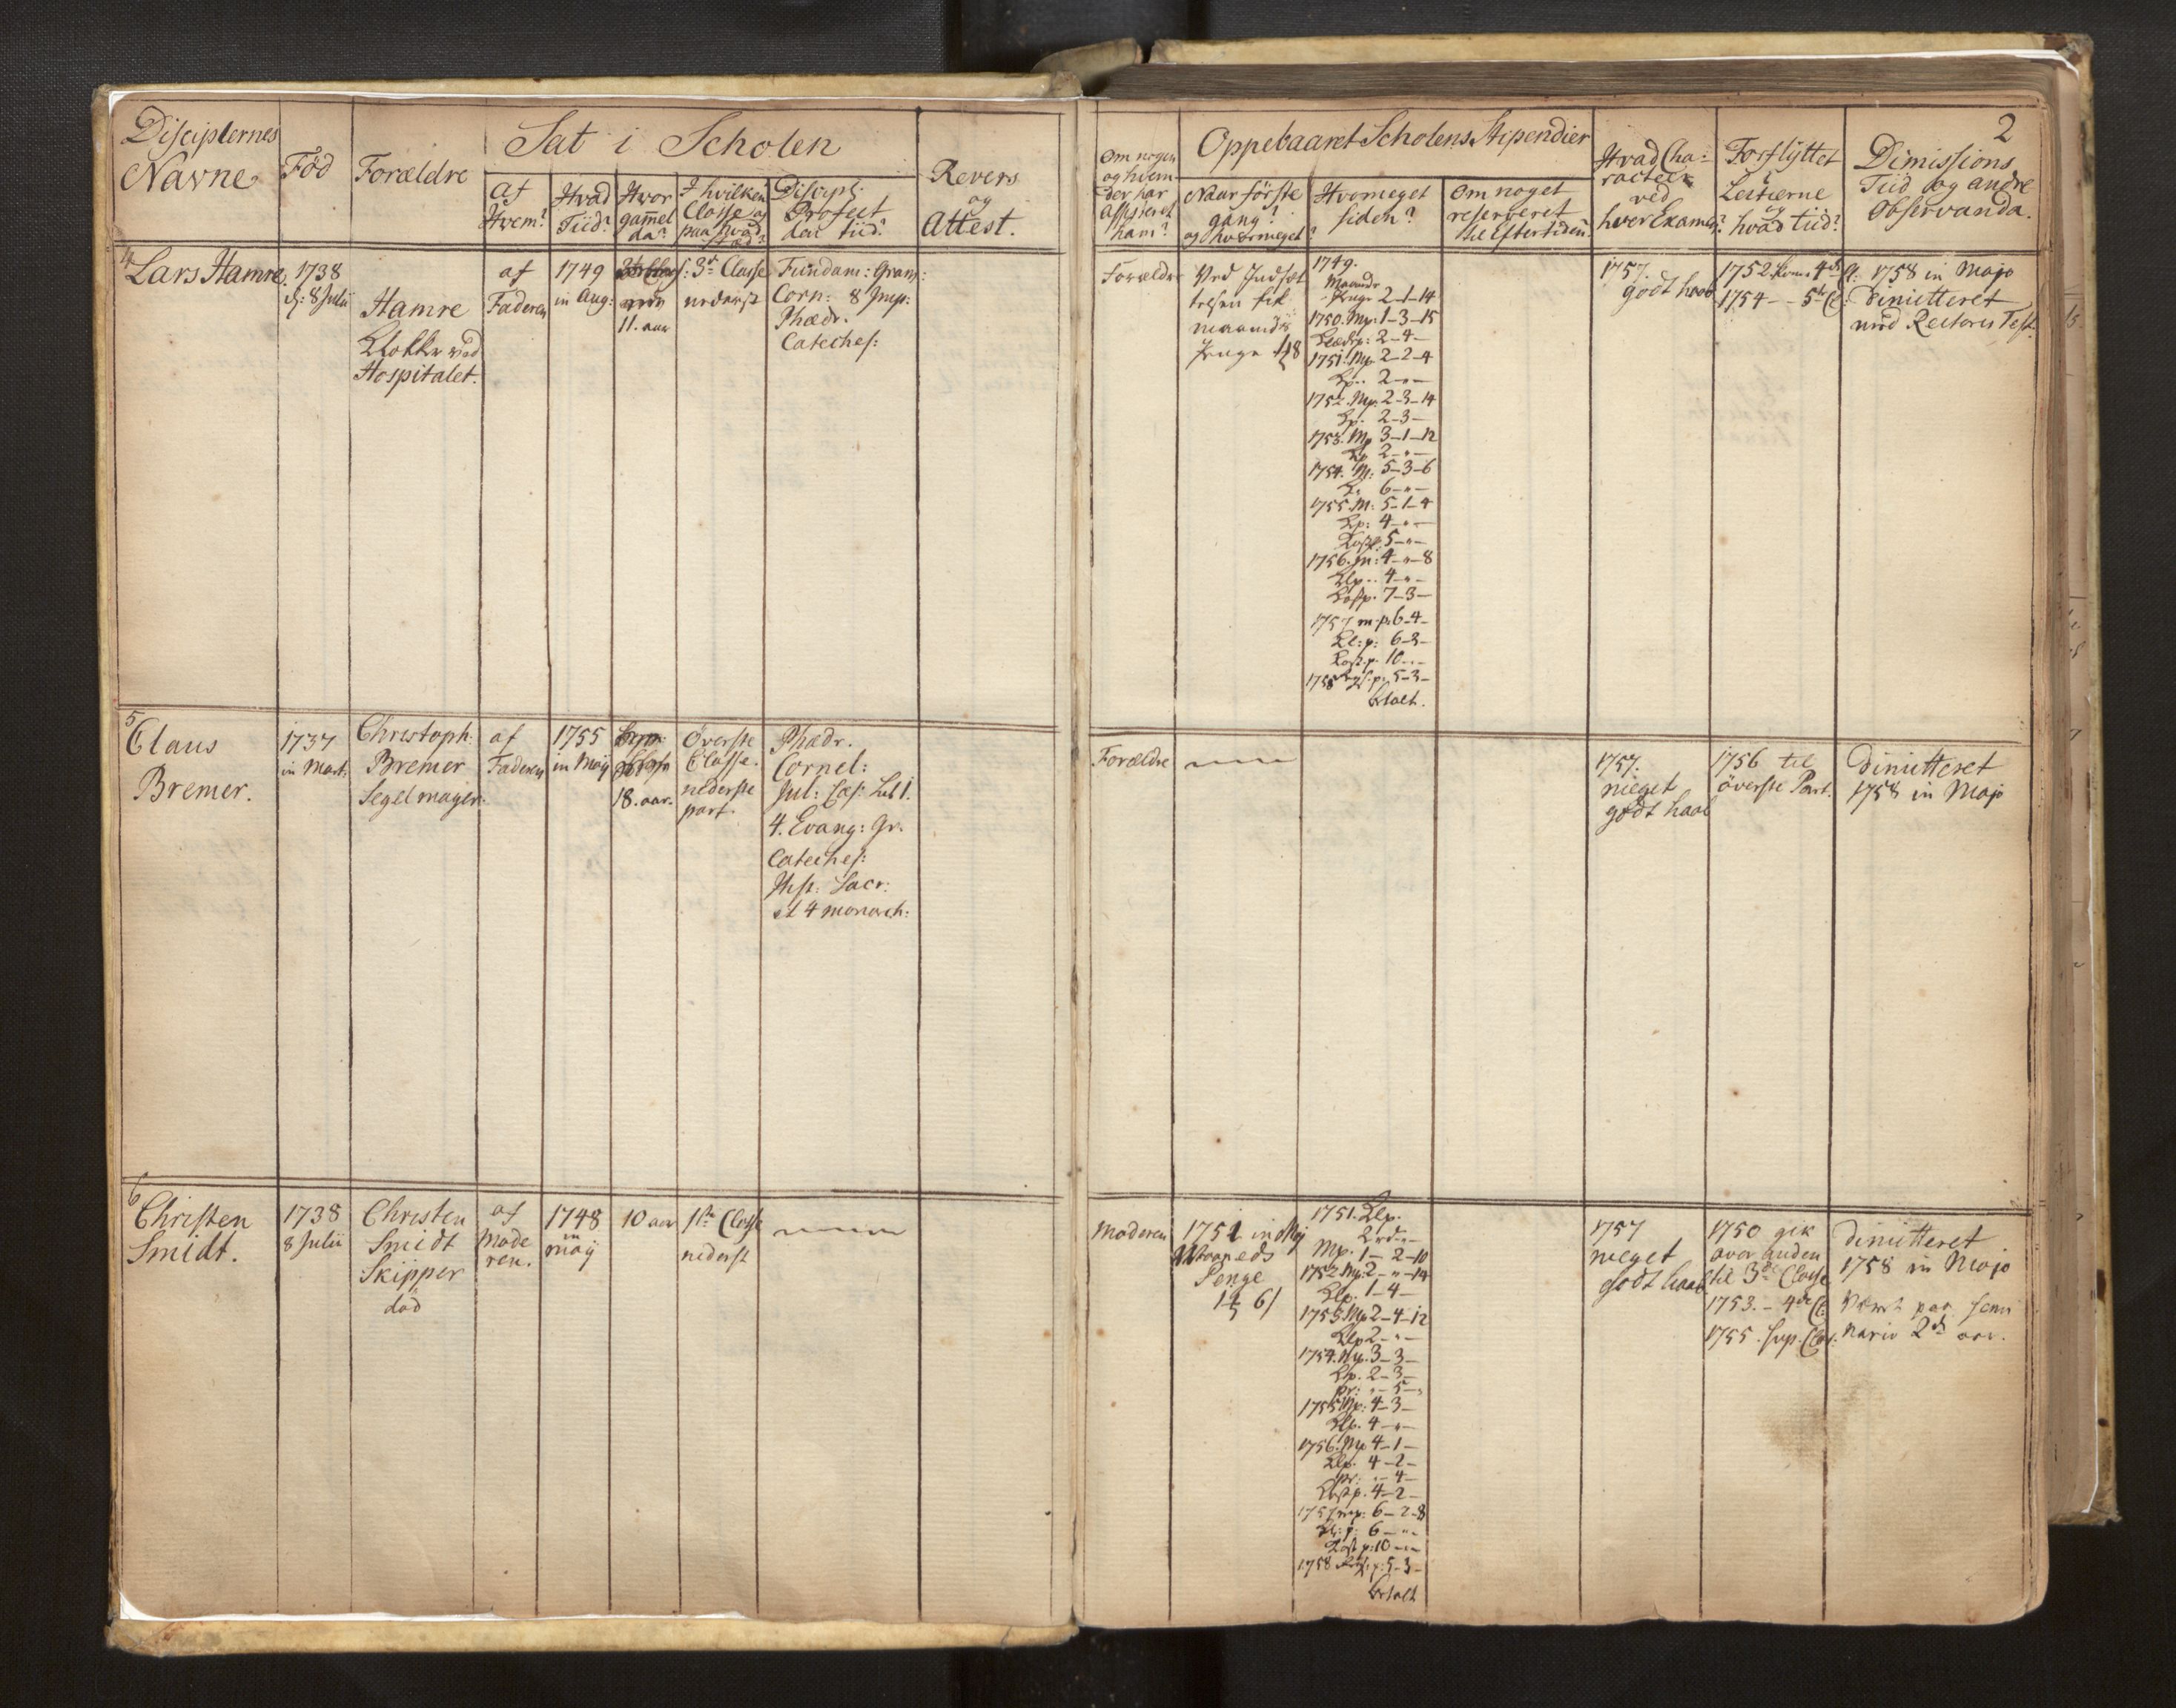 Disciplernes
Navne
Föd
Forældre
Sat i Scholen
af
Hvem?
Hvad
Tiid?
Hvor
gam̄el
da?
I hvilken
Classe og
paa hvad
sted?
Discipl:
Profect
den tiid?
Revers
og
Attest.
4
Lars Hamre.
1738
d: 8 Julii
Hamre
Klokker ved
Hospitalet.
af
Faderen
1749
in Aug:
11. aar
3die Classe
nederst
Fundam: Gram:
Corn: 8 Imp:
Phædr.
Cateches:
5
Claus
Bremer.
1737
in Mart:
Christoph:
Bremer
Segelmager.
af
Faderen
1755
in Maij
18. aar.
Överste
Classe.
nederste
part.
Phædr.
Cornel:
Jul: Cæs: Lib 1.
4. Evang: Gr.
Cateches:
Hist: Sacr:
et 4 monarch:
6
Christen
Smidt.
1738
8 Julii
Christen
Smidt
Skipper
död
af
Mode
ren.
1748
in
maij
10 aar
1ste Classe
nederst
2
Om nogen
og hvem
der har
Assisteret
ham?
Oppebaaret Scholens Stipendier
Naar förste
gang?
og hvormeget?
Hvormeget
siden?
Om noget
reserveret
til Eftertiden
Hvad Cha-
racteer
ved
hver Examen?
Forflyttet
i
Lectierne
og
hvad tiid?
Dimissions
Tiid og andre
Observanda.
Forældre
Ved Indsæt
telsen fik
maaneds
Penge 8
1749.
Maaneds
Penge 2-1-14
1750. Mp: 1-3-15
Klædp: 2-4-
1751. Mp 2-2-4
Kp. 2-"-
1752. Mp: 2-3-14
Kp. 2-3-
1753. Mp 3-1-12
Kp 2-"-
1754. M: 5-3-6
K. 6-"-
1755 M: 5-1-4
Kp: 4-"-
Kostp: 5-"-
1756. m: 4-"-8
Klp. 4-"-
Kostp. 7-3-
1757 m.p: 6-4-
Kl:p: 6-3-
Kost.p. 10-"-
1758 p: 5-3-
betalt.
1757.
godt haab
1752 4de Cl:
1754 - - 5te Cl:
1758 in Majo
dimitteret
med Rectoris Test.
Forældre
1757.
meget
godt haab
1756 til
överste Part.
dimitteret
1758 in Majo
Moderen
1751 in Maj
Maaneds
Penge
1751. Klp.
2 rd "-
Mp. 1-2-10
1752 Mp: 2-"-14
Klp. 1-4-
1753 Mp 2-4-12
Klp 2-"-
1754. Mp. 3-3-
Klp. 2-3-
pr: "-5-"
1755 Mp: 4-3-
Klp. 4-"-
1756. Mp 4-1-
Klp. 4-2-
pr: "-4-
Kostp. 4-2-
1757 mp: 6-2-8
Kl:p: 6-"-
Kost p: 10-"-
1758 p: 5-3-
betalt
1757
meget
godt haab
1750 gik
over anden
til 3die Classe
1753. - 4de Cl:
1755. sup. Clas:
dimitteret
1758 in Majo
Været paa Semi
nario 2de aar.